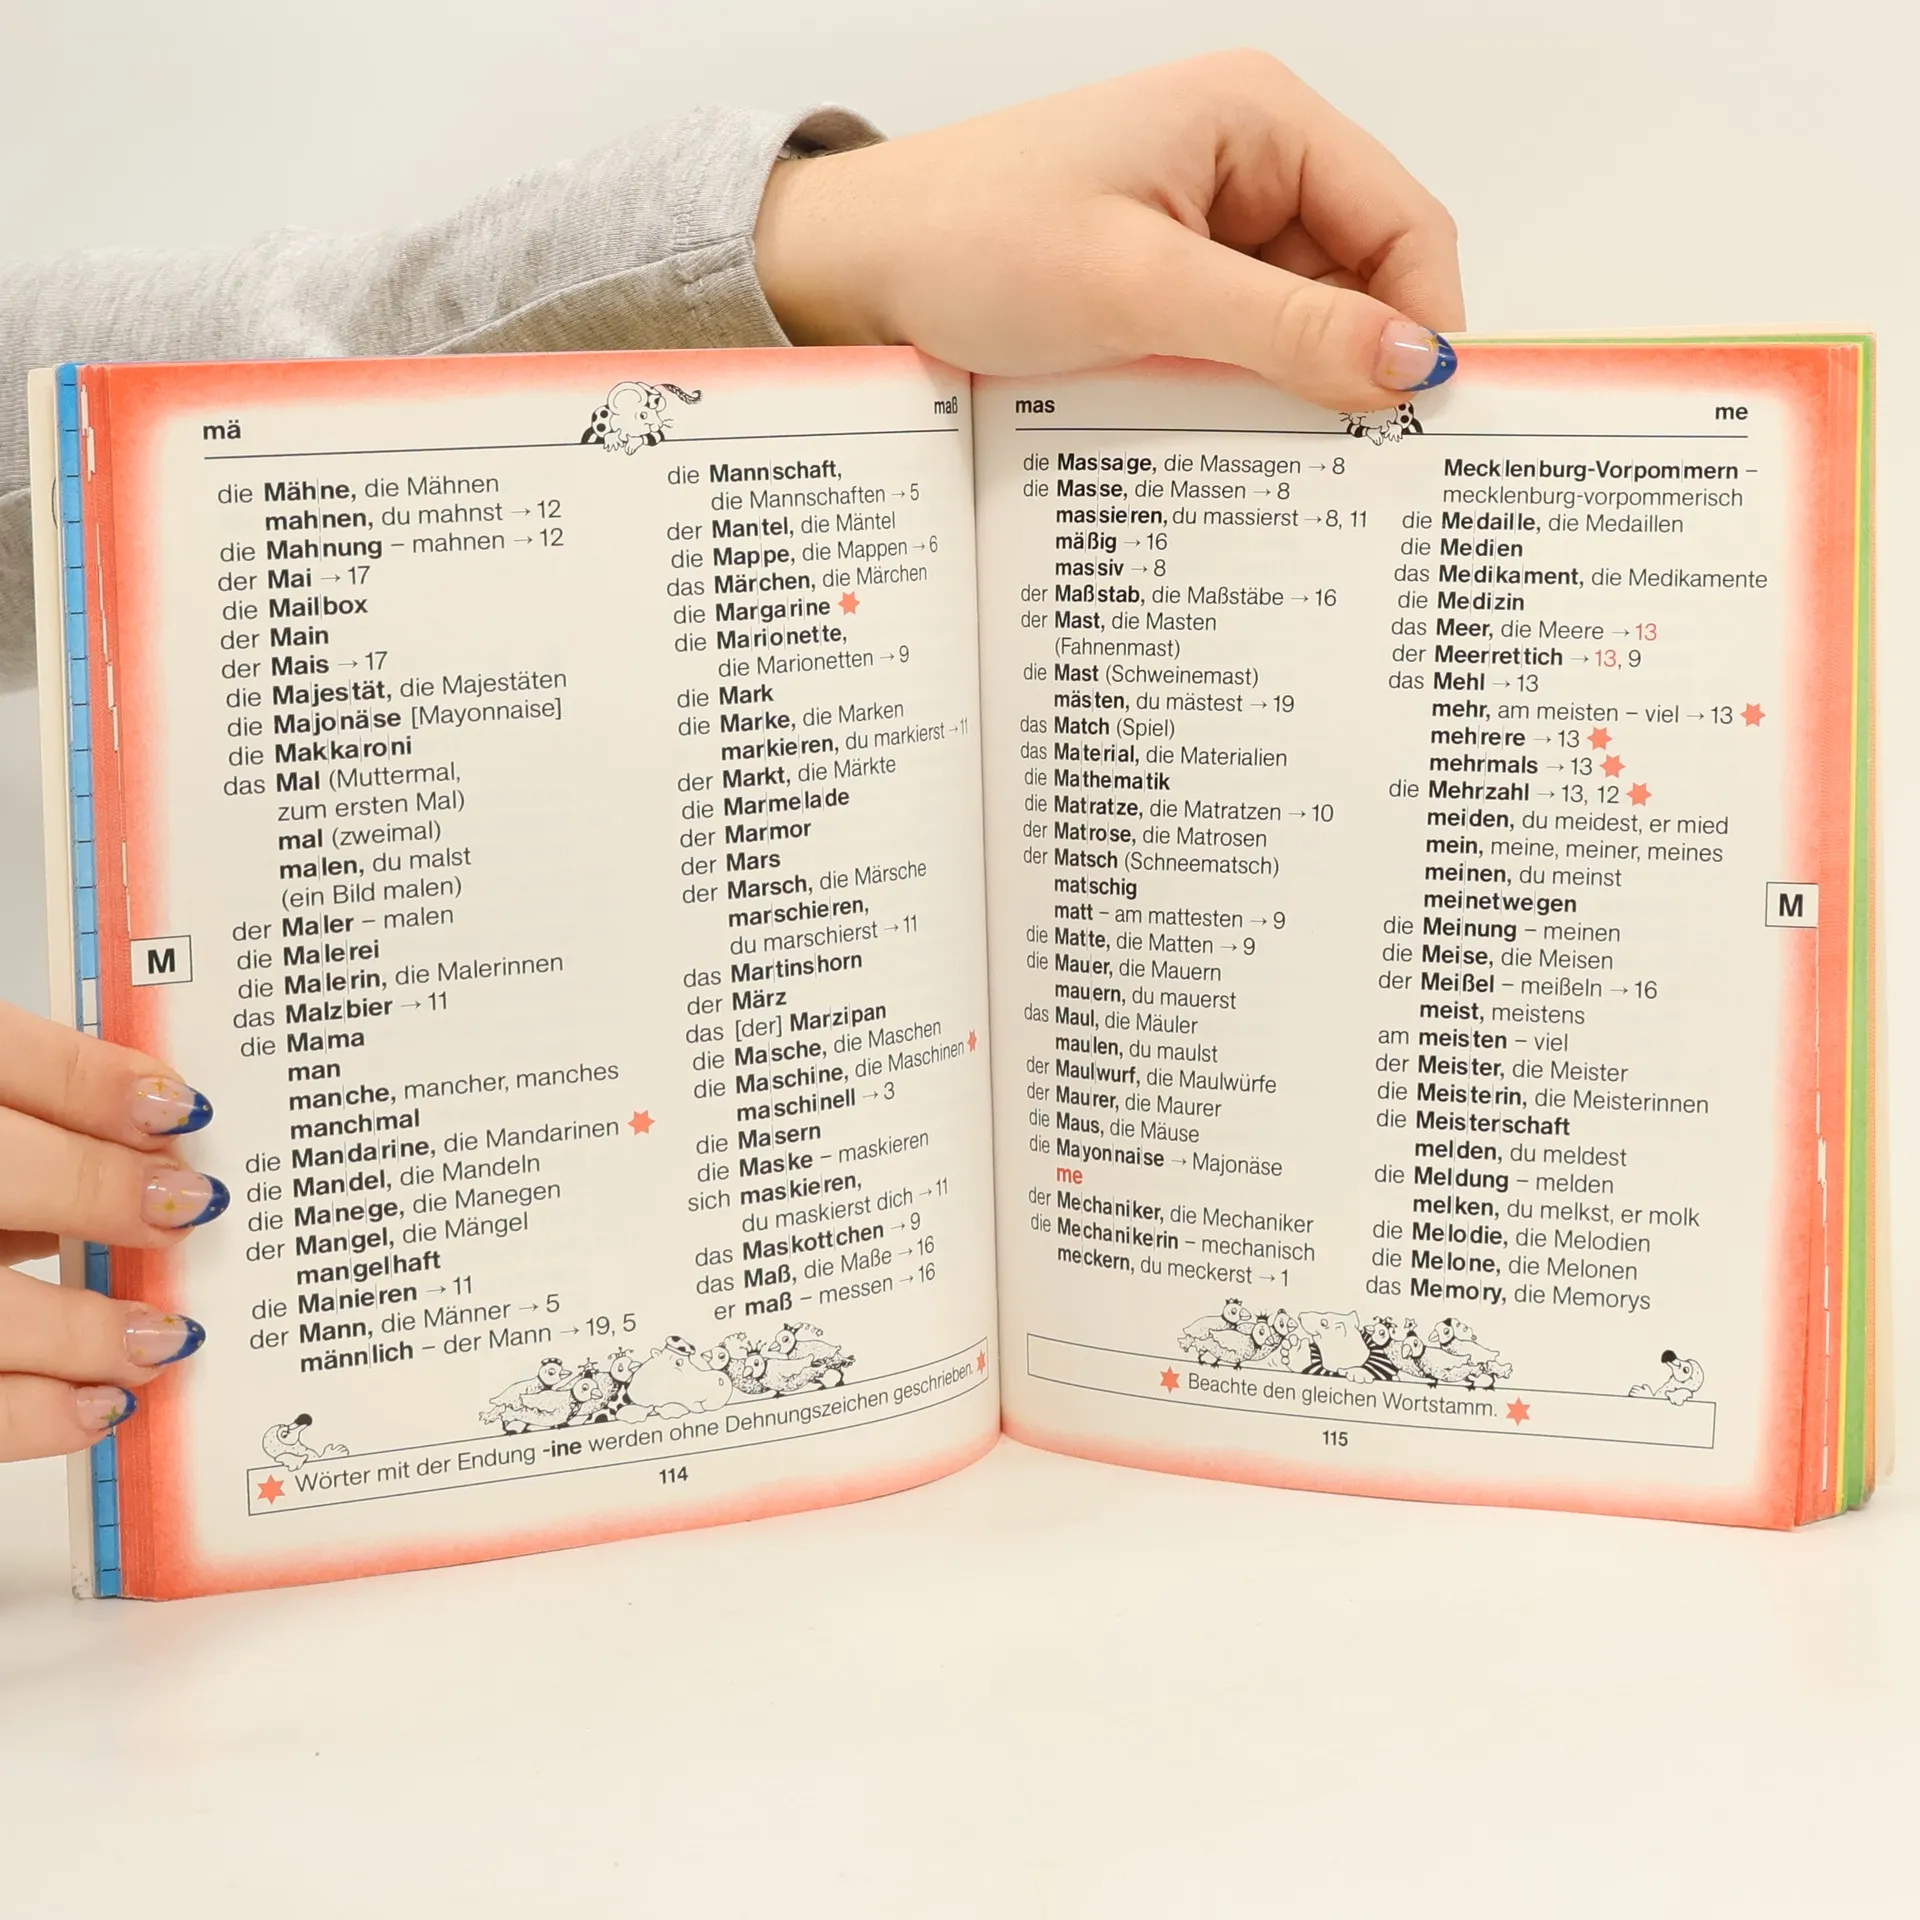 mä
maß
die Mäh|ne, die Mähnen
mah|nen, du mahnst → 12
die Mah|nung – mahnen → 12
der Mai → 17
die Mail|box
der Main
der Mais → 17
die Ma|jes|tät, die Majestäten
die Ma|jo|nä|se [Mayonnaise]
die Mak|ka|ro|ni
das Mal (Muttermal,
zum ersten Mal)
mal (zweimal)
ma|len, du malst
(ein Bild malen)
der Ma|ler – malen
die Ma|le|rei
die Ma|le|rin, die Malerinnen
das Malz|bier → 11
die Ma|ma
man
man|che, mancher, manches
manch|mal
die Man|da|ri|ne, die Mandarinen
die Man|del, die Mandeln
die Ma|ne|ge, die Manegen
der Man|gel, die Mängel
man|gel|haft
die Ma|nie|ren → 11
der Mann, die Männer → 5
männ|lich – der Mann → 19, 5
die Mann|schaft,
die Mannschaften → 5
der Man|tel, die Mäntel
die Map|pe, die Mappen → 6
das Mär|chen, die Märchen
die Mar|ga|ri|ne
die Ma|ri|o|net|te,
die Marionetten → 9
die Mark
die Mar|ke, die Marken
mar|kie|ren, du markierst → 11
der Markt, die Märkte
die Mar|me|la|de
der Mar|mor
der Mars
der Marsch, die Märsche
mar|schie|ren,
du marschierst → 11
das Mar|tins|horn
der März
das [der] Mar|zi|pan
die Ma|sche, die Maschen
die Ma|schi|ne, die Maschinen
ma|schi|nell → 3
die Ma|sern
die Mas|ke – maskieren
sich mas|kie|ren,
du maskierst dich → 11
das Mas|kott|chen → 9
das Maß, die Maße → 16
er maß – messen → 16
M
Wörter mit der Endung -ine werden ohne Dehnungszeichen geschrieben.
114
mas
me
die Mas|sa|ge, die Massagen → 8
die Mas|se, die Massen → 8
mas|sie|ren, du massierst → 8, 11
mä|ßig → 16
mas|siv → 8
der Maß|stab, die Maßstäbe → 16
der Mast, die Masten
(Fahnenmast)
die Mast (Schweinemast)
mäs|ten, du mästest → 19
das Match (Spiel)
das Ma|te|ri|al, die Materialien
die Ma|the|ma|tik
die Mat|rat|ze, die Matratzen → 10
der Mat|ro|se, die Matrosen
der Matsch (Schneematsch)
mat|schig
matt – am mattesten → 9
die Mat|te, die Matten → 9
die Mau|er, die Mauern
mau|ern, du mauerst
das Maul, die Mäuler
mau|len, du maulst
der Maul|wurf, die Maulwürfe
der Mau|rer, die Maurer
die Maus, die Mäuse
die Ma|yon|nai|se → Majonäse
me
der Me|cha|ni|ker, die Mechaniker
die Me|cha|ni|ke|rin – mechanisch
me|ckern, du meckerst → 1
Meck|len|burg-Vor|pom|mern –
mecklenburg-vorpommerisch
die Me|dail|le, die Medaillen
die Me|di|en
das Me|di|ka|ment, die Medikamente
die Me|di|zin
das Meer, die Meere → 13
der Meer|ret|tich → 13, 9
das Mehl → 13
mehr, am meisten – viel → 13
meh|re|re → 13
mehr|mals → 13
die Mehr|zahl → 13, 12
mei|den, du meidest, er mied
mein, meine, meiner, meines
mei|nen, du meinst
mei|net|we|gen
die Mei|nung – meinen
die Mei|se, die Meisen
der Mei|ßel – meißeln → 16
meist, meistens
am meis|ten – viel
der Meis|ter, die Meister
die Meis|te|rin, die Meisterinnen
die Meis|ter|schaft
mel|den, du meldest
die Mel|dung – melden
mel|ken, du melkst, er molk
die Me|lo|die, die Melodien
die Me|lo|ne, die Melonen
das Me|mo|ry, die Memorys
M
Beachte den gleichen Wortstamm.
115